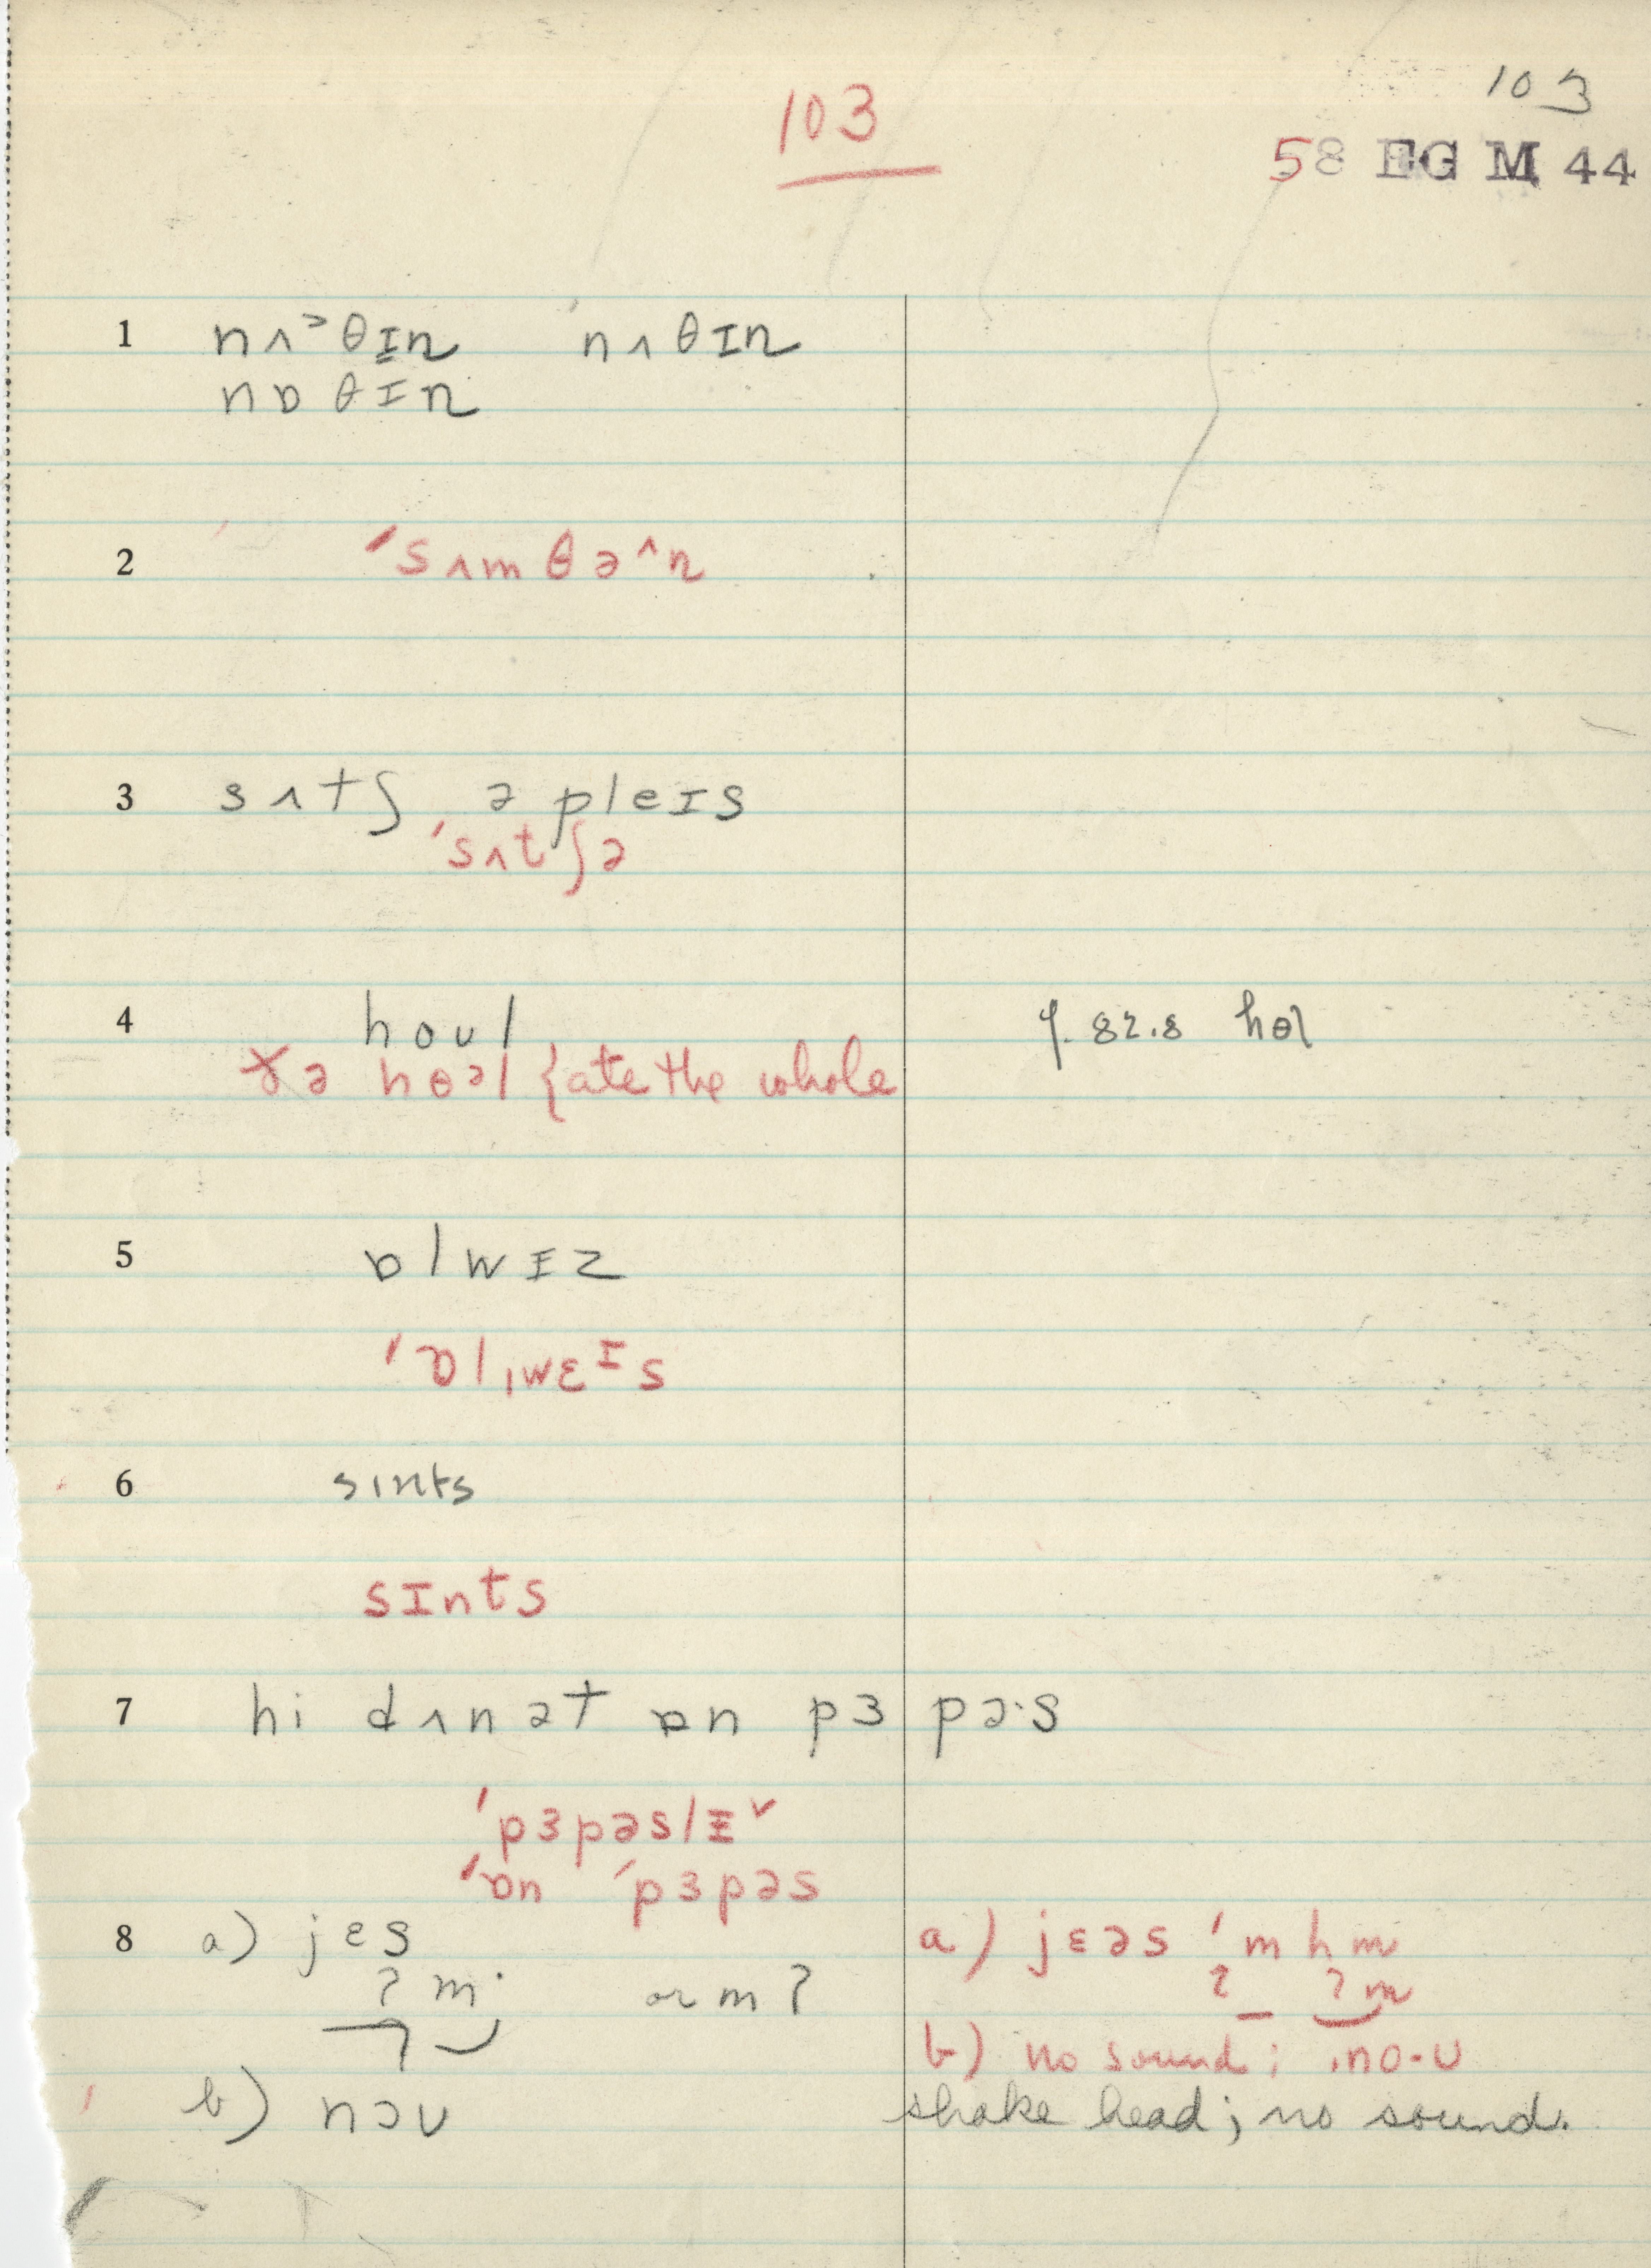 103
103
58 EG M 44
1 nʌ˃θɪn 'nʌθɪn
nɒθɪn
2 'sʌmθə^n
3 sʌtʃ ə pleɪs
'sʌtʃə
4 houl
ɤə hɵəl {ate the whole
cf. 82.8 hɵl
5 ɒlwɪz
'ɒlˌwɛᴵs
6 sɪnts
sɪnts
7 hi dʌnət ɒn pɜpə·s
'pɜpəslɪ˅
'ɒn 'pɜpəs
8 a) jɛs
ʔm· or mʔ
a) jɛəs 'mhm
ʔ ʔm
b) no sound; .no·u
b) nɔu
shake head; no sound.